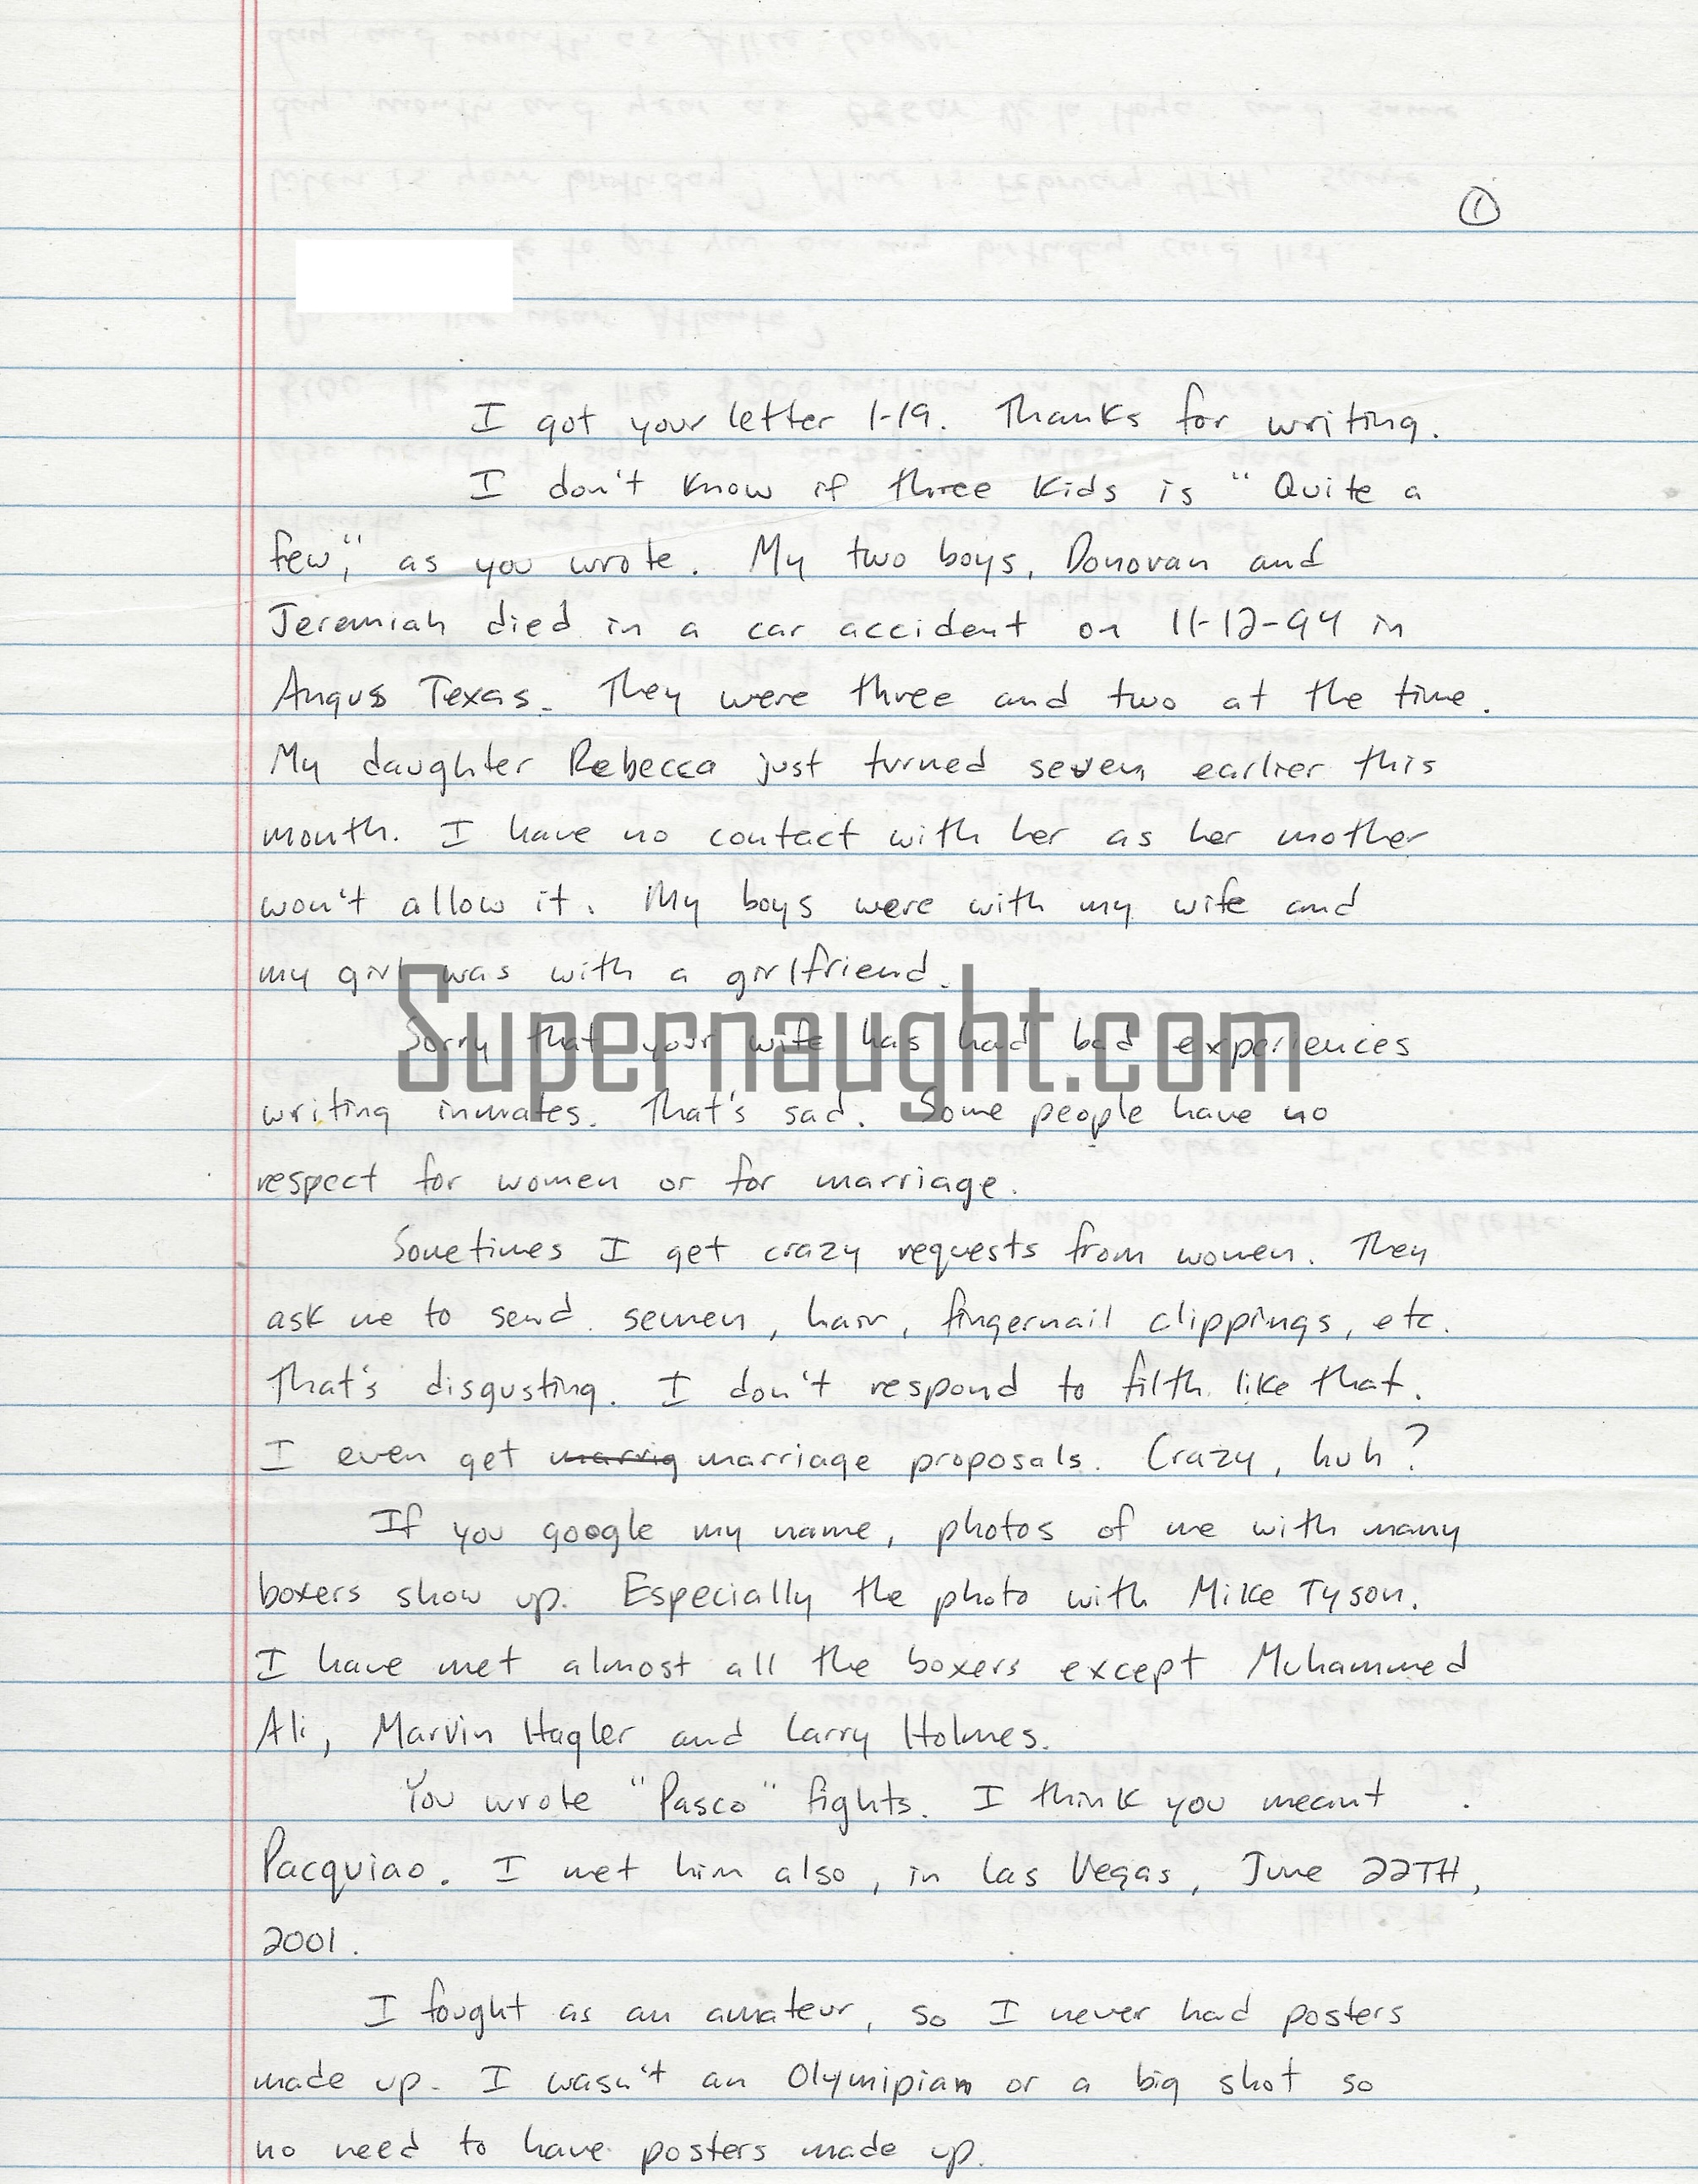 ①
I got your letter 1-19. Thanks for writing.
I don't know if three kids is "Quite a
few," as you wrote. My two boys, Donovan and
Jeremiah died in a car accident on 11-12-94 in
Angus Texas. They were three and two at the time.
My daughter Rebecca just turned seven earlier this
month. I have no contact with her as her mother
won't allow it. My boys were with my wife and
my girl was with a girlfriend.
Supernaught.com
Sorry that your wife has had bad experiences
writing inmates. That's sad. Some people have no
respect for women or for marriage.
Sometimes I get crazy requests from women. They
ask me to send semen, hair, fingernail clippings, etc.
That's disgusting. I don't respond to filth like that.
I even get marrig marriage proposals. Crazy, huh?
If you google my name, photos of me with many
boxers show up. Especially the photo with Mike Tyson.
I have met almost all the boxers except Muhammed
Ali, Marvin Hagler and Larry Holmes.
You wrote "Pasco" fights. I think you meant
Pacquiao. I met him also, in Las Vegas, June 22TH,
2001.
I fought as an amateur, so I never had posters
made up. I wasn't an Olymipian or a big shot so
no need to have posters made up.